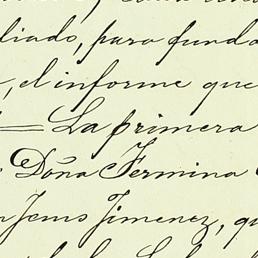 para funda
, el informe que
= La primera
Doña Fermina
Jesus Jimenez, qu